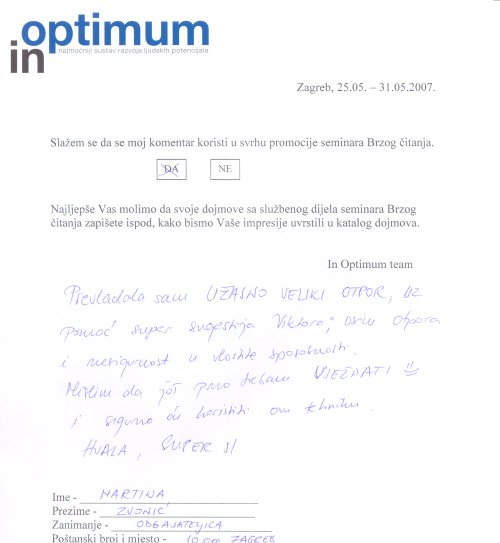 in optimum
najmoćniji sustav razvoja ljudskih potencijala
Zagreb, 25.05. – 31.05.2007.
Slažem se da se moj komentar koristi u svrhu promocije seminara Brzog čitanja.
DA NE
Najljepše Vas molimo da svoje dojmove sa službenog dijela seminara Brzog
čitanja zapišete ispod, kako bismo Vaše impresije uvrstili u katalog dojmova.
In Optimum team
Prevladala sam UŽASNO VELIKI OTPOR, uz
pomoć super sugestija Viktora, osim otpora
i nesigurnost u vlastite sposobnosti.
Mislim da još puno trebam VJEŽBATI
i sigurno ću koristiti ovu tehniku.
HVALA, SUPER SI
Ime - MARTINA
Prezime - ZVONIĆ
Zanimanje - ODGAJATELJICA
Poštanski broj i mjesto - 10 000 ZAGREB